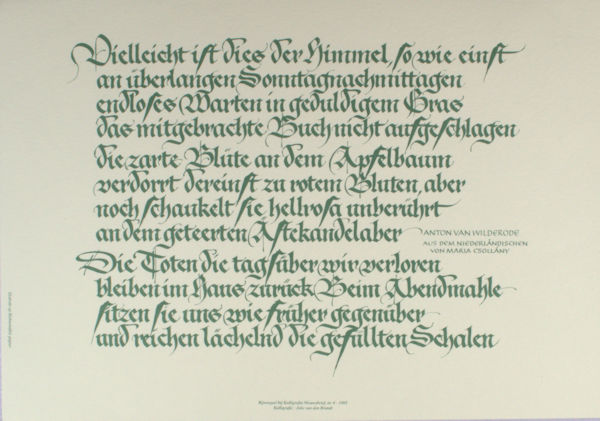 Vielleicht ist dies der Himmel, so wie einst
an überlangen Sonntagnachmittagen
endloses Warten in geduldigem Gras
das mitgebrachte Buch nicht aufgeschlagen
die zarte Blüte an dem Apfelbaum
verdorrt dereinst zu rotem Bluten, aber
noch schaukelt sie hellrosa unberührt
an dem geteerten Astekandelaber
ANTON VAN WILDERODE
AUS DEM NIEDERLÄNDISCHEN
VON MARIA CSOLLÁNY
Die Toten die tagsüber wir verloren
bleiben im Haus zurück Beim Abendmahle
sitzen sie uns wie früher gegenüber
und reichen lächelnd die gefüllten Schalen